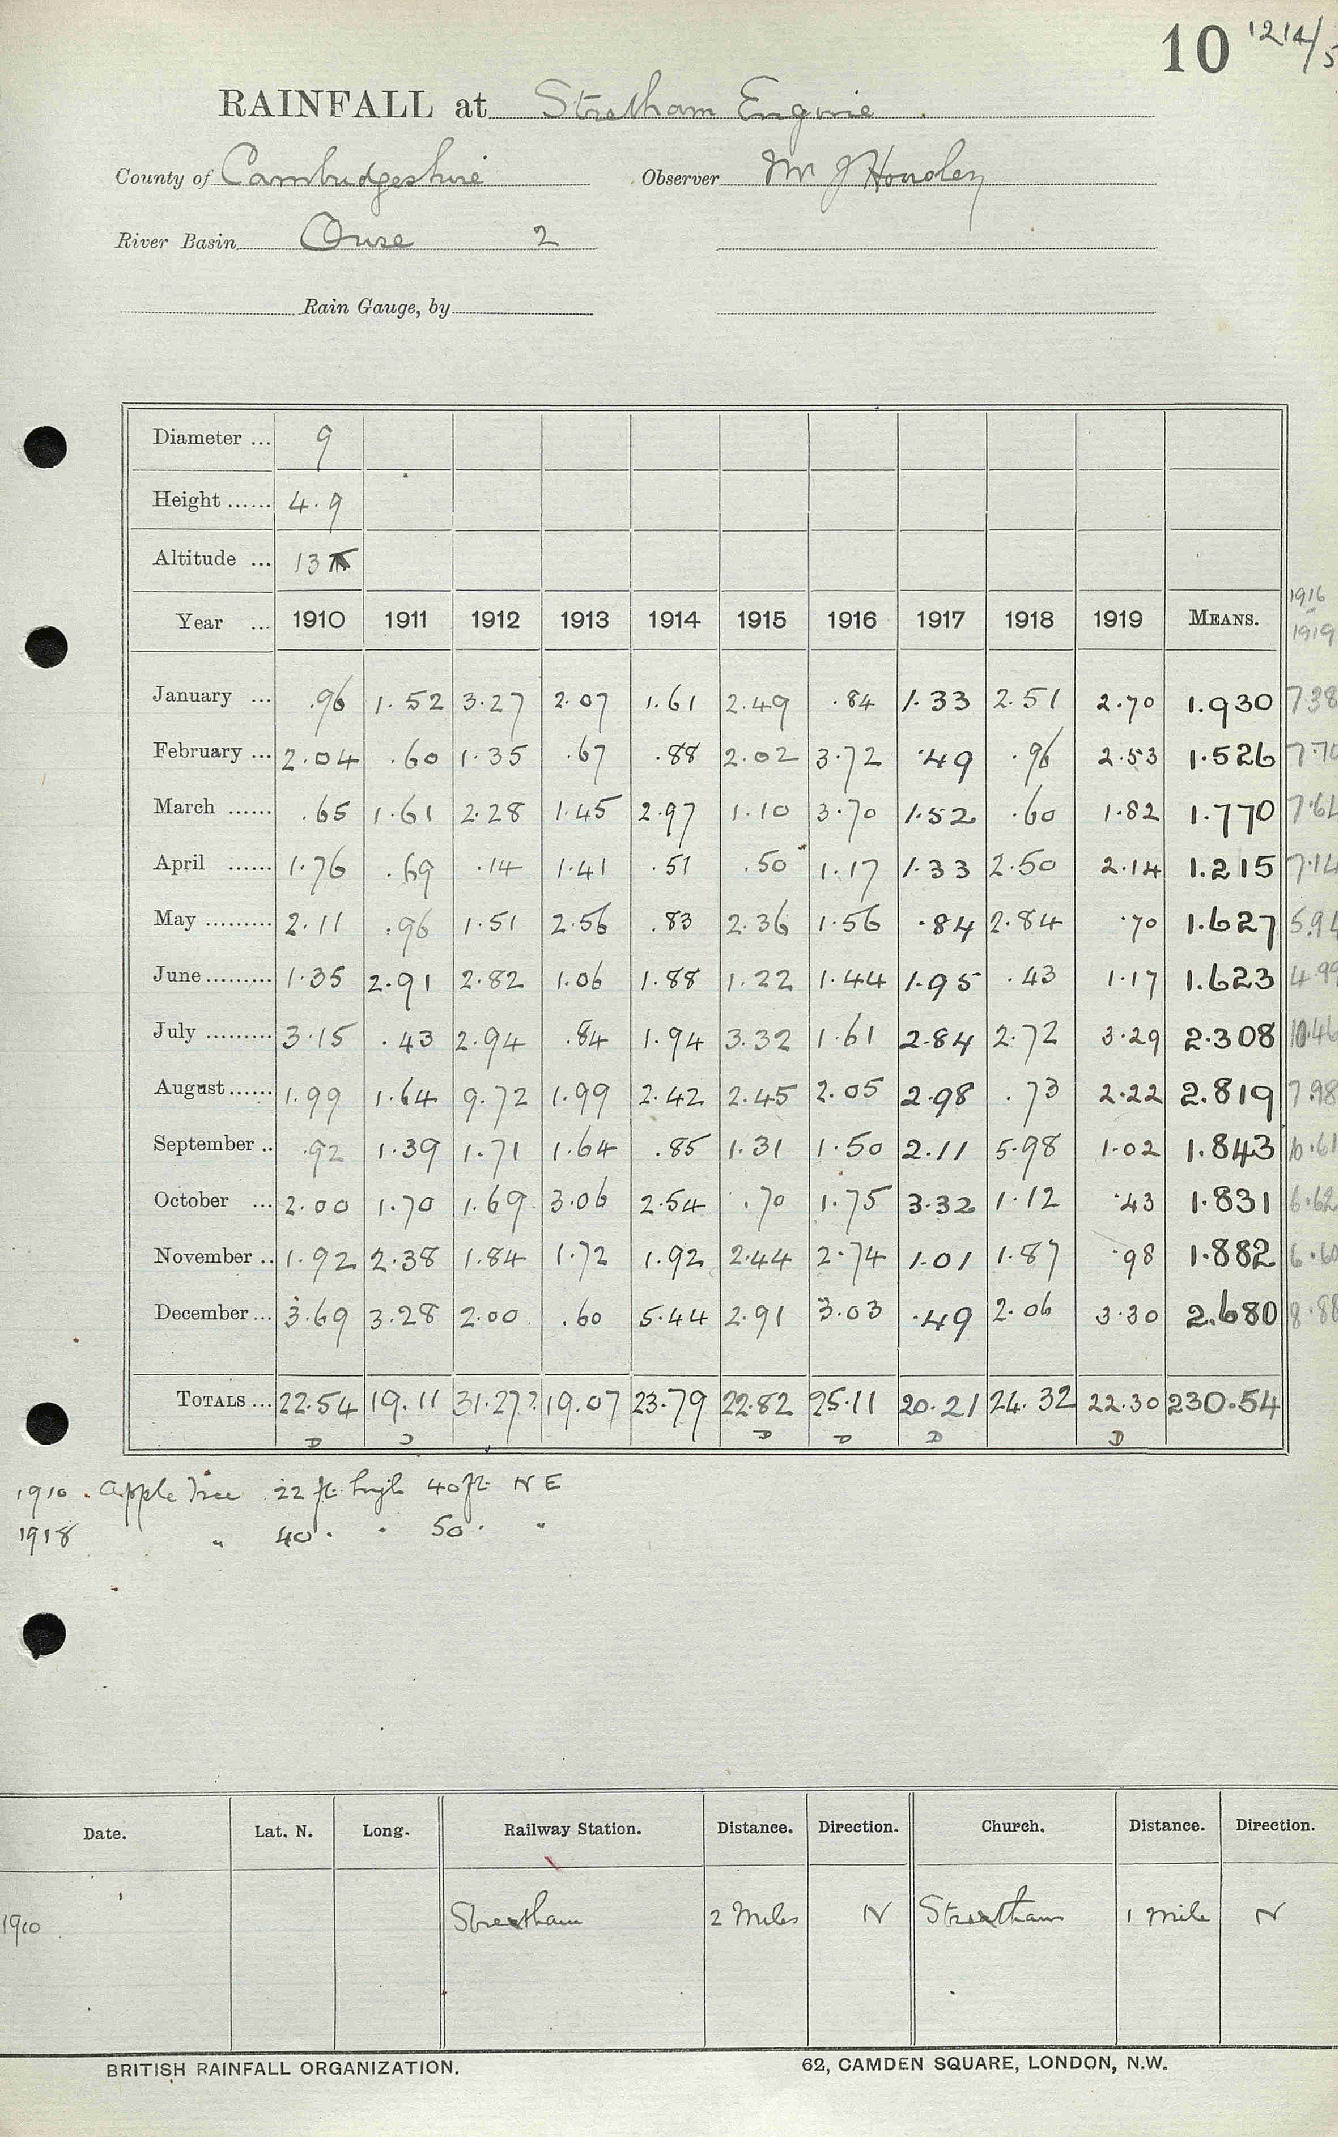 10 1214/5
RAINFALL at Stretham Engine
County of Cambridgeshire Observer Mr J
River Basin Ouse 2
Rain Gauge, by
Diameter ... 9
Height ...... 4.9
Altitude ... 13
1916
Year ... 1910 1911 1912 1913 1914 1915 1916 1917 1918 1919 MEANS. 1919
January ... .96 1.52 3.27 2.07 1.61 2.49 .84 1.33 2.51 2.70 1.930 7.38
February ... 2.04 .60 1.35 .67 .88 2.02 3.72 .49 .96 2.53 1.526 7.70
March ...... .65 1.61 2.28 1.45 2.97 1.10 3.70 1.52 .60 1.82 1.770 7.61
April ...... 1.76 .69 .14 1.41 .51 .50 1.17 1.33 2.50 2.14 1.215 7.14
May ......... 2.11 .96 1.51 2.56 .83 2.36 1.56 .84 2.84 .70 1.627 5.94
June ......... 1.35 2.91 2.82 1.06 1.88 1.22 1.44 1.95 .43 1.17 1.623 4.99
July ......... 3.15 .43 2.94 .84 1.94 3.32 1.61 2.84 2.72 3.29 2.308 10.46
August ...... 1.99 1.64 9.72 1.99 2.42 2.45 2.05 2.98 .73 2.22 2.819 7.98
September .. .92 1.39 1.71 1.64 .85 1.31 1.50 2.11 5.98 1.02 1.843 10.61
October ... 2.00 1.70 1.69 3.06 2.54 .70 1.75 3.32 1.12 .43 1.831 6.62
November .. 1.92 2.38 1.84 1.72 1.92 2.44 2.74 1.01 1.87 .98 1.882 6.60
December ... 3.69 3.28 2.00 .60 5.44 2.91 3.03 .49 2.06 3.30 2.680 8.88
TOTALS ... 22.54 19.11 31.27? 19.07 23.79 22.82 25.11 20.21 24.32 22.30 230.54
D D D D D D
1910. Apple Tree 22 ft. high 40 ft. NE
1918 " 40 . " 50 . "
Date. Lat. N. Long. Railway Station. Distance. Direction. Church. Distance. Direction.
1910 Stretham 2 Miles N Stretham 1 mile N
BRITISH RAINFALL ORGANIZATION. 62, CAMDEN SQUARE, LONDON, N.W.